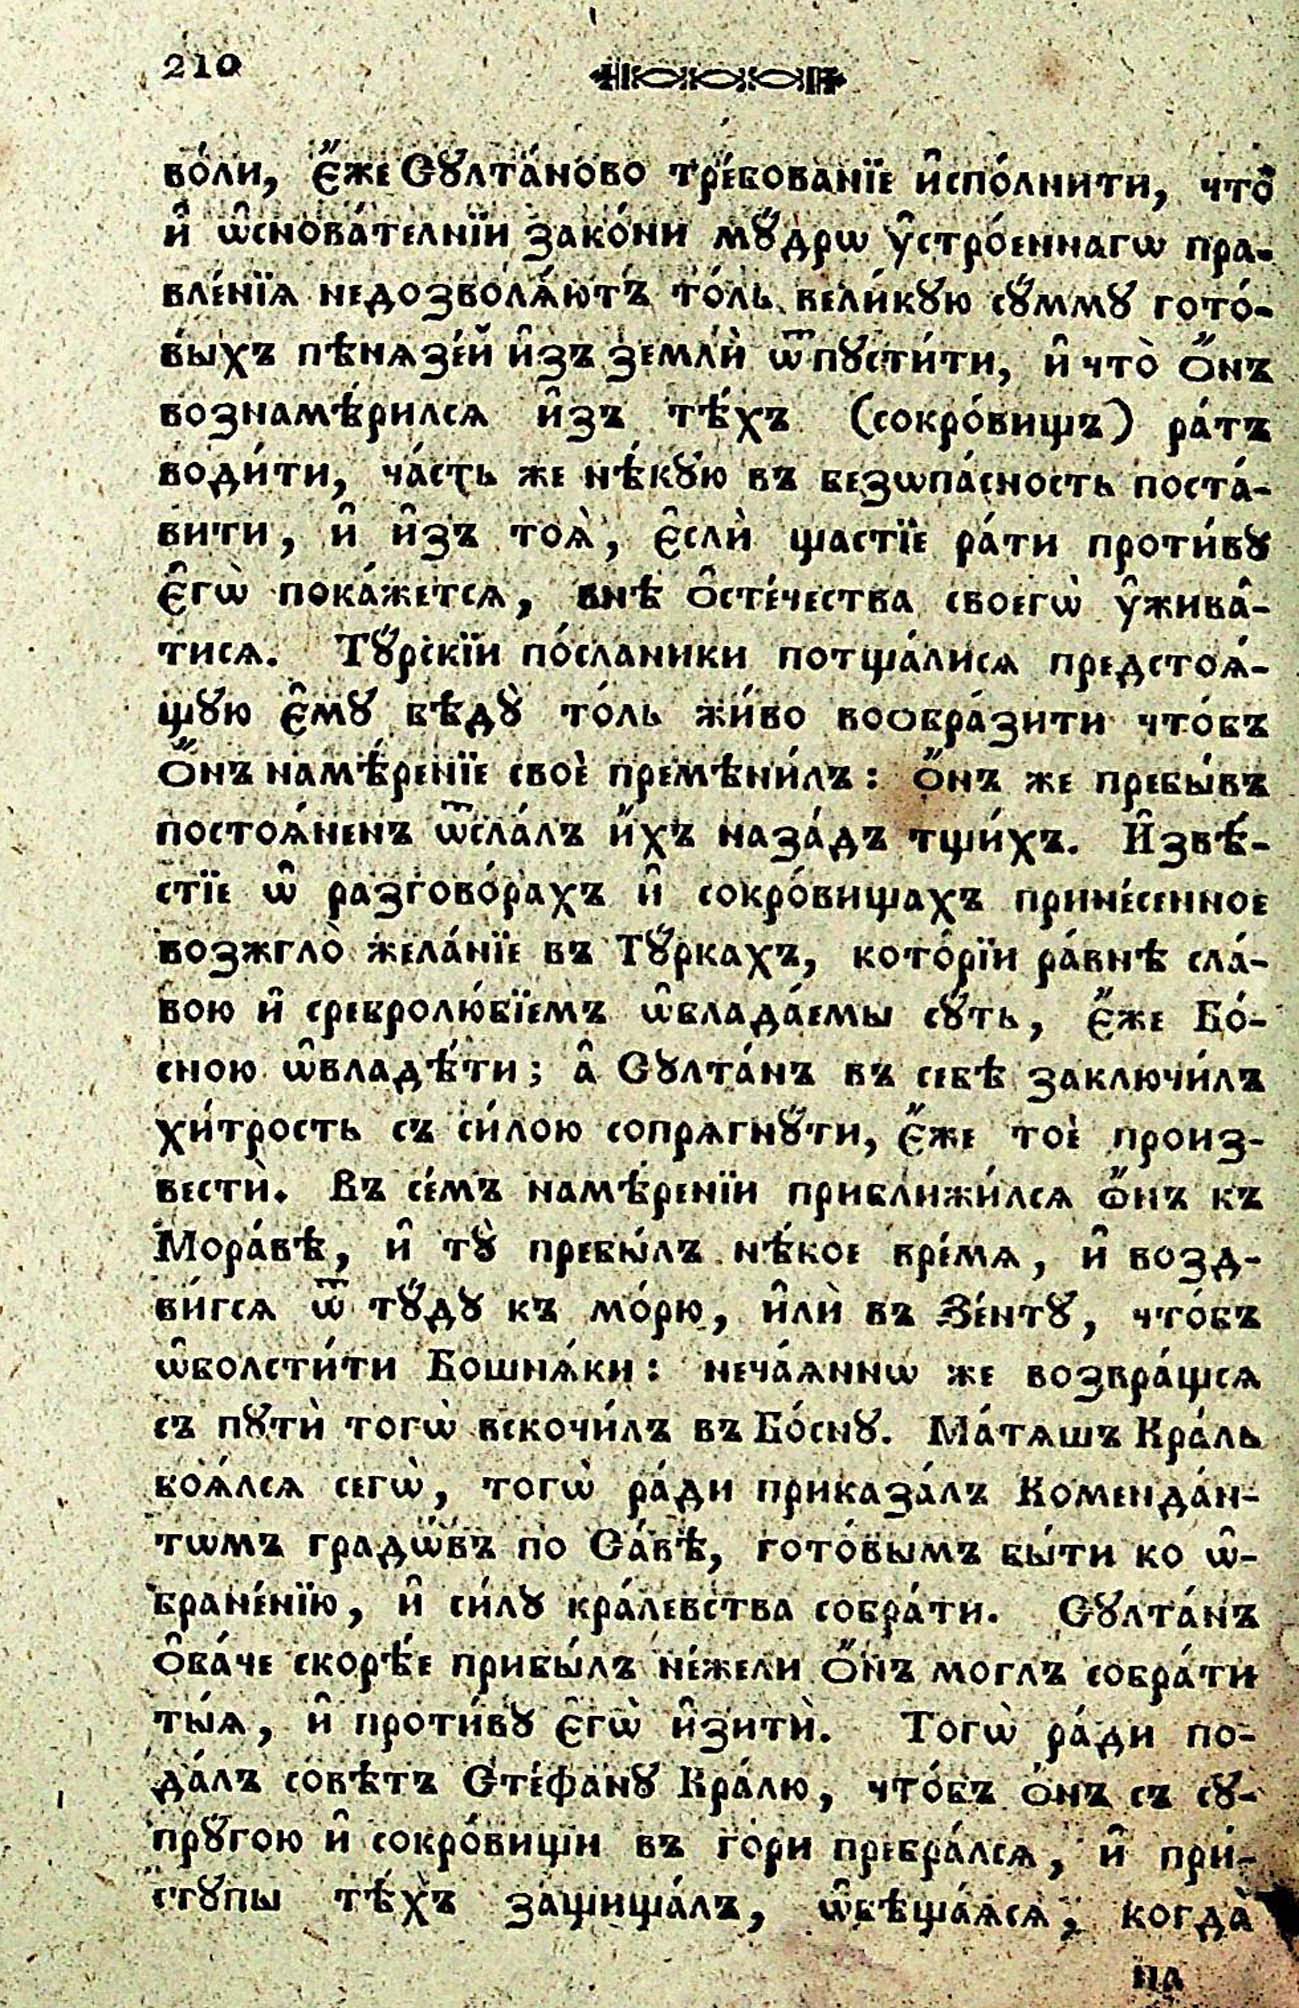 210
во́ли, є҆́же Сꙋлта́ново тре́бованїе и҆спо́лнити, что̀
и҆ ѡ҆снова́телнїи зако́ни мꙋ́дрѡ ᲂу҆стро́еннагѡ пра-
вле́нїѧ недозволѧ́ютъ то́ль вели́кꙋю сꙋ́ммꙋ гото́-
выхъ пѣнѧзе́й и҆зъ землѝ ѿпꙋсти́ти, и҆ что̀ О҆́нъ
вознамѣ́рилсѧ и҆зъ тѣ́хъ (сокро́вищъ) ра́тъ
води́ти, ча́сть же нѣ́кꙋю въ безѡпа́сность поста́-
вити, и҆ и҆зъ тоѧ̀, є҆слѝ щастїе ра́ти проти́вꙋ
є҆гѡ̀ пока́жетсѧ, внѣ о҆сте́чества своегѡ̀ ᲂу҆жива҆-
тисѧ. Тꙋ́рскїи по́сланики потща́лисѧ предстоѧ́-
щꙋю є҆мꙋ бѣдꙋ̀ то́ль жи́во вообра́зити что́бъ
О҆́нъ намѣ́ренїе своѐ премѣни́лъ: О҆́нъ же пребы́въ
постоѧ́ненъ ѿсла́лъ и҆́хъ наза́дъ тщи́хъ. И҆звѣ́-
стїе ѡ҆ разгово́рахъ и҆ сокро́вищахъ прине́сенное
возжгло̀ жела́нїе въ Тꙋ́ркахъ, кото́рїи ра́внѣ сла́-
вою и҆ сребролю́бїемъ ѡ҆блада́емы сꙋ́ть, є҆́же Бо́-
сною ѡ҆владѣ́ти; а҆ Сꙋлта́нъ въ себѣ заключи́лъ
хи́трость съ си́лою сопрѧгнꙋ́ти, є҆́же тоѐ произ-
вестѝ. Въ се́мъ намѣ́ренїи приближи́лсѧ Ѻ҆́нъ къ
Мора́вѣ, и҆ тꙋ̀ пребы́лъ нѣ́кое вре́мѧ, и҆ возд-
ви́гсѧ ѿ тꙋ́дꙋ къ мо́рю, и҆лѝ въ Зе́нтꙋ, что́бъ
ѡ҆болсти́ти Бошнѧ́ки: неча́ѧннѡ же возвра́щсѧ
съ пꙋтѝ тогѡ̀ вскочи́лъ въ Бо́снꙋ. Ма́тѧшъ Кра́ль
боѧ́лсѧ сегѡ̀, тогѡ̀ ра́ди приказа́лъ Коменда́н-
тѡмъ градѡ́въ по Са́вѣ, гото́вымъ бы́ти ко ѡ҆-
бране́нїю, и҆ си́лꙋ кра́левства собра́ти. Сꙋлта́нъ
о҆ба́че скорѣ́е прибы́лъ не́жели О҆́нъ моглъ собра́ти
ты́ѧ, и҆ проти́вꙋ є҆гѡ̀ и҆зитѝ. Тогѡ̀ ра́ди по-
да́лъ совѣ́тъ Сте́фанꙋ Кра́лю, что́бъ о҆нъ съ сꙋ-
прꙋ́гою и҆ сокро́вищи въ го́ри пребра́лсѧ, и҆ при́-
стꙋпы тѣ́хъ защища́лъ, ѡ҆бѣща́ѧсѧ, когда̀
на